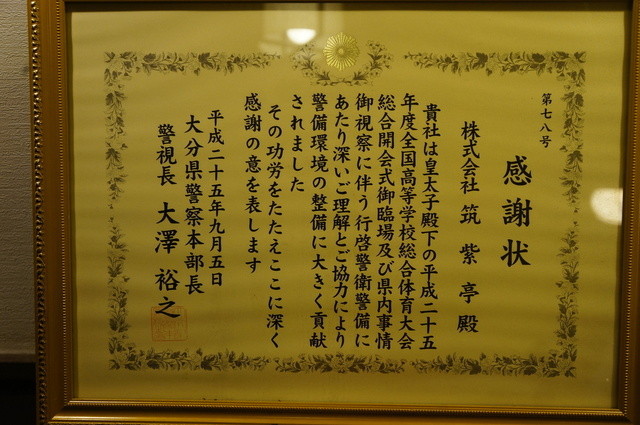 第七八号
感謝状
株式会社 筑紫亭殿
貴社は皇太子殿下の平成二十五
年度全国高等学校総合体育大会
総合開会式御臨場及び県内事情
御視察に伴う行啓警衛警備に
あたり深いご理解とご協力により
警備環境の整備に大きく貢献
されました
その功労をたたえここに深く
感謝の意を表します
平成二十五年九月五日
大分県警察本部長
警視長 大澤裕之